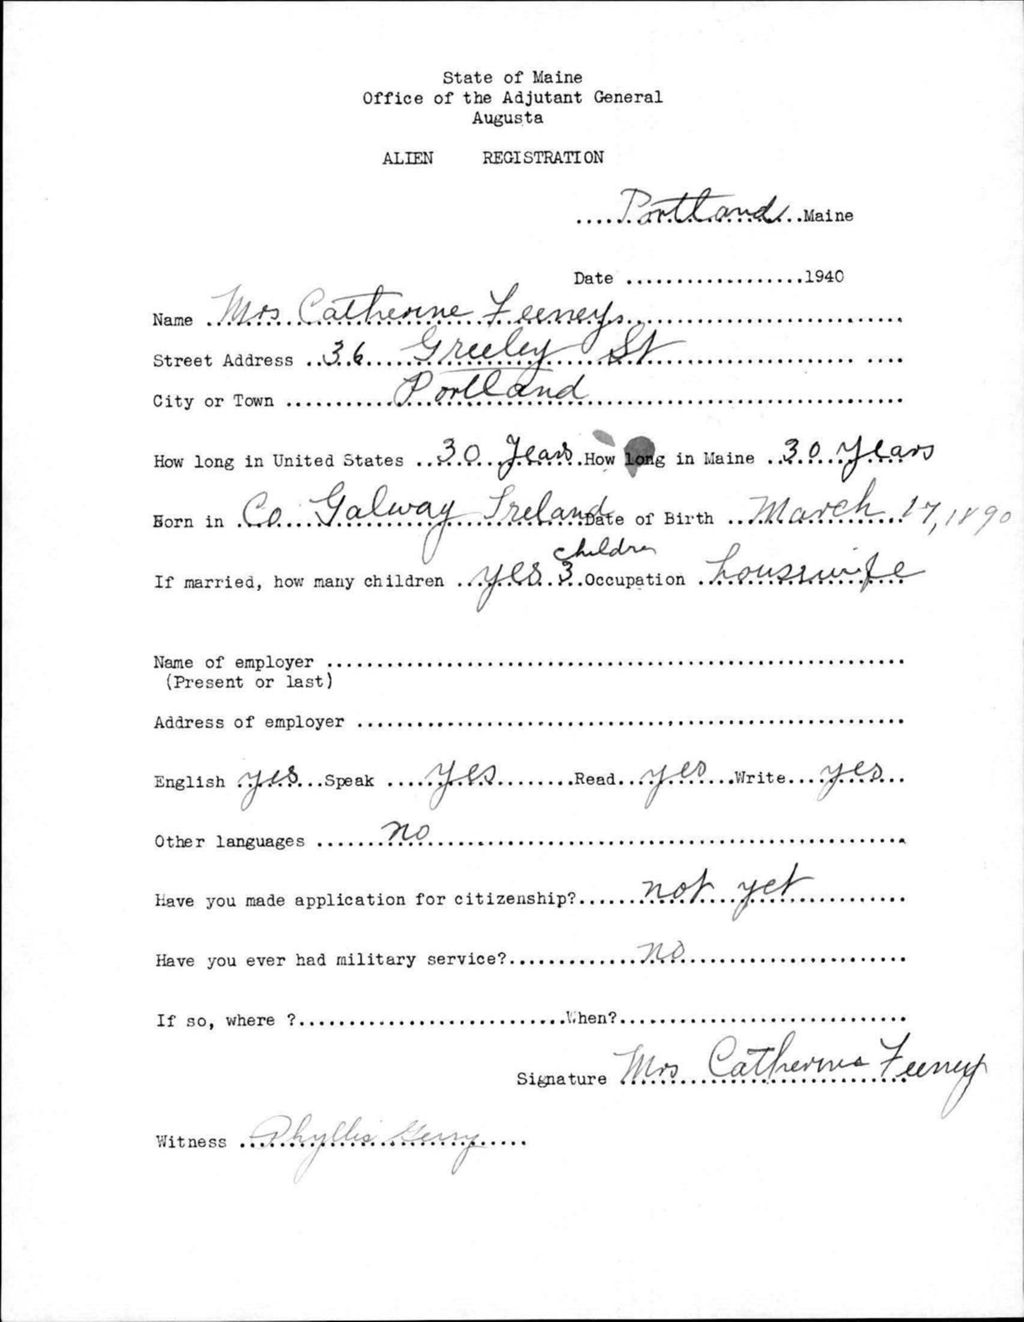 State of Maine
Office of the Adjutant General
Augusta
ALIEN REGISTRATION
....Portland..Maine
Date ..................1940
Name ..Mrs Catherine Feeney..............................
Street Address ..36....Greeley St........................
City or Town ...........Portland................................
How long in United States ..30..Years.How long in Maine ..30..Years
Born in .Co. Galway Ireland Date of Birth ..March 17, 1890
children
If married, how many children ..yes.3.Occupation ..housewife
Name of employer ..........................................................
(Present or last)
Address of employer .......................................................
English .yes...Speak ....yes........Read..yes...Write...yes...
Other languages .......no................................................
Have you made application for citizenship?......not yet..........
Have you ever had military service?.............no......................
If so, where ?...........................When?.............................
Signature Mrs. Catherine Feeney
Witness ..Phyllis Gerry.....